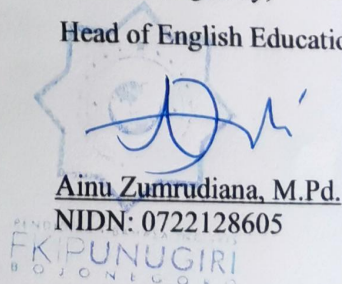 Head of English Educatio
Ainu Zumrudiana, M.Pd.
NIDN: 0722128605
FKIP UNUGIRI
BOJONEGORO